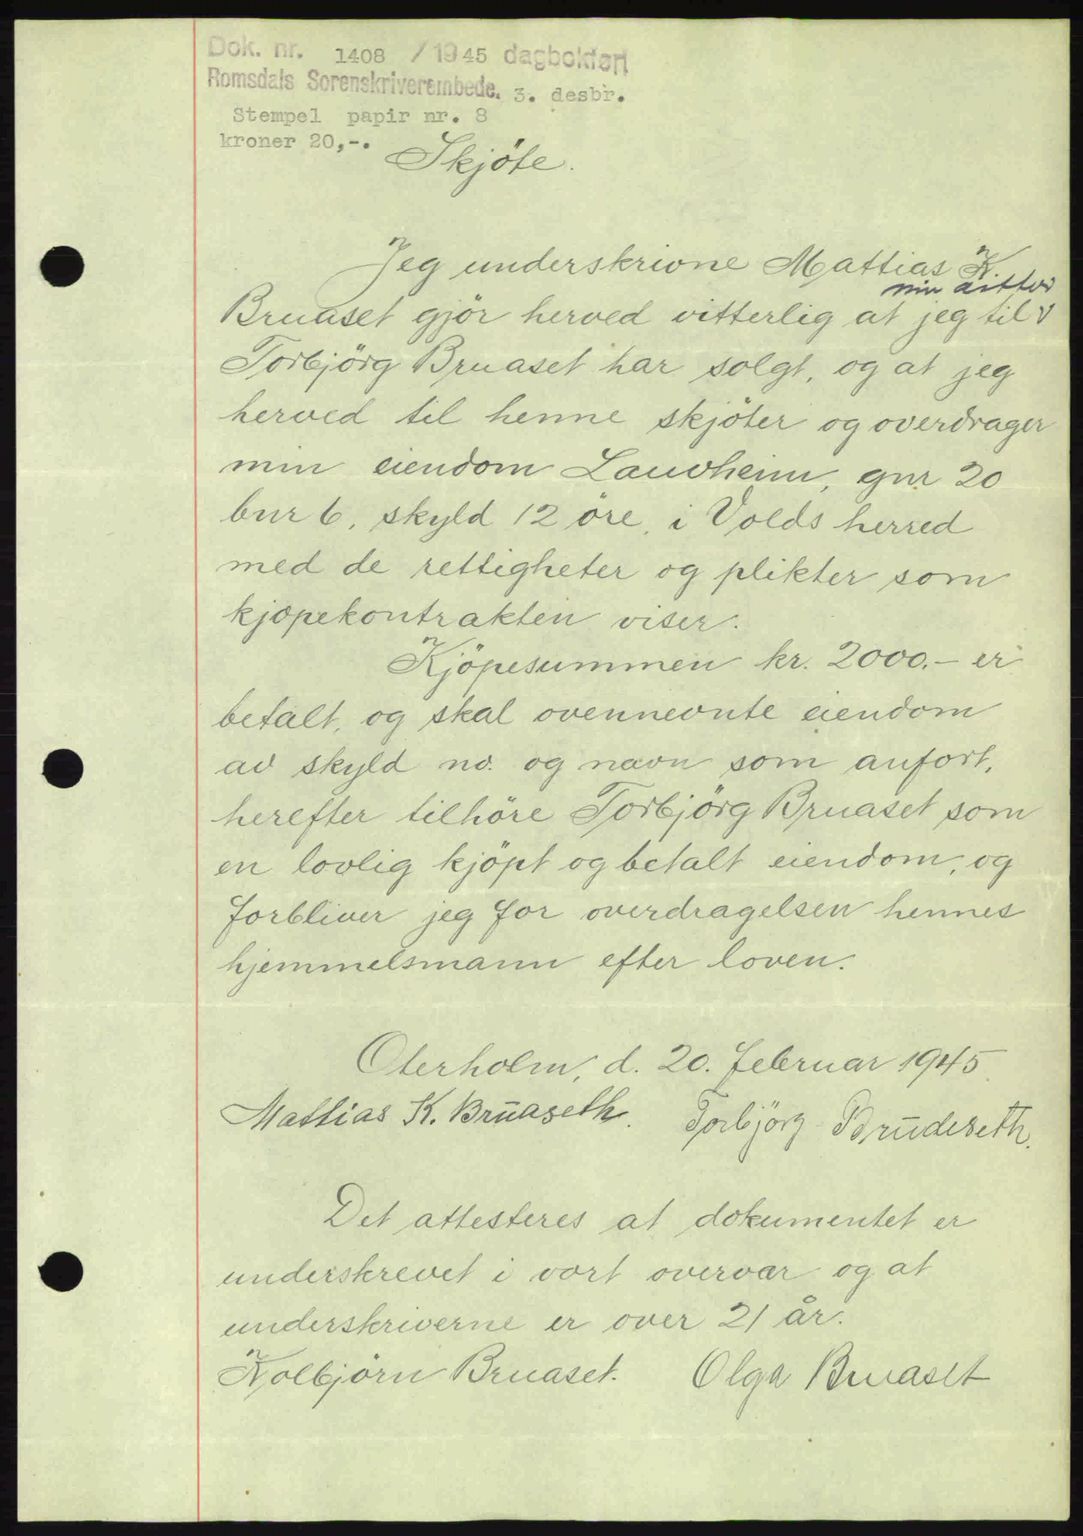 Dok. nr. 1408 / 1945 dagbokført
Romsdals Sorenskriverembede. 3. desbr.
Stempel papir nr. 8
kroner 20,-.
Skjöte.
Jeg underskrivne Mattias K.
min ditter
Bruaset gjör herved vitterlig at jeg til v
Torbjörg Bruaset har solgt, og at jeg
herved til henne skjöter og overdrager
min eiendom Lauvheim, gnr 20
bnr 6, skyld 12 öre, i Volds herred
med de rettigheter og plikter som
kjöpekontrakten viser.
Kjöpesummen kr. 2000.- er
betalt, og skal ovennevnte eiendom
av skyld no. og navn som anfört,
herefter tilhöre Torbjörg Bruaset som
en lovlig kjöpt og betalt eiendom, og
forbliver jeg for overdragelsen hennes
hjemmelsmann efter loven.
Oterholm, d. 20. februar 1945.
Mattias K. Brūaseth. Torbjörg Brūdeseth.
Det attesteres at dokumentet er
underskrevet i vort overvær og at
underskriverne er over 21 år.
Kolbjörn Bruaset. Olga Bruaset